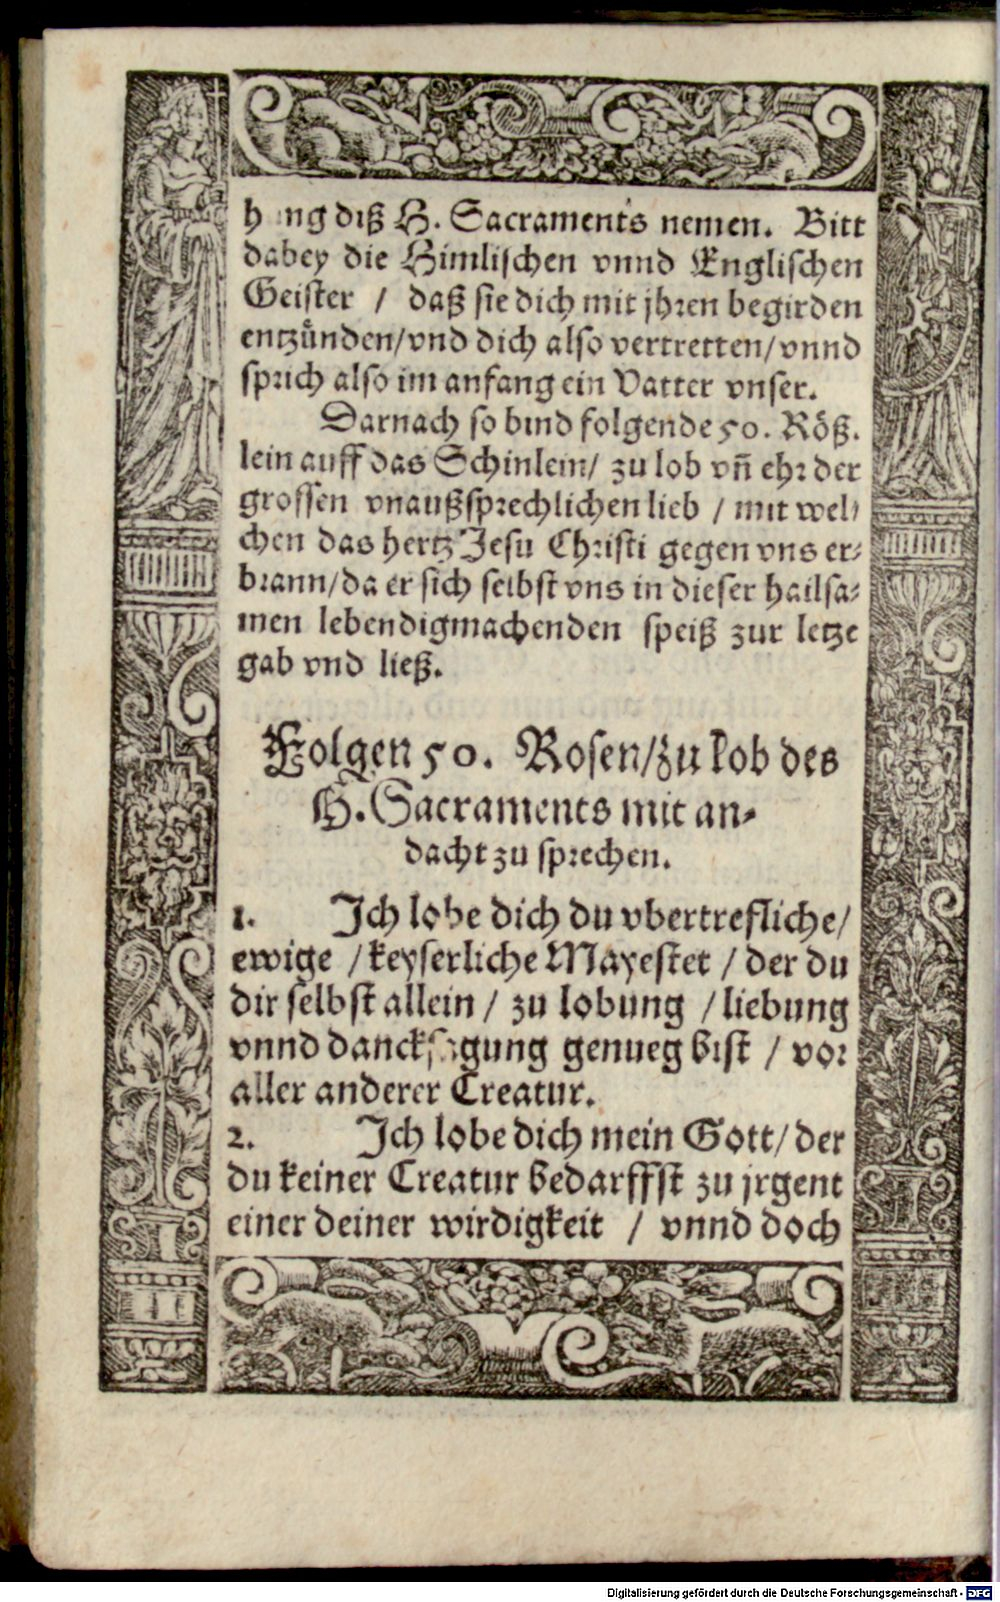 diß H. Sacraments nemen. Bitt
dabey die Himlischen vnnd Englischen
Geister / daß sie dich mit jhren begirden
entzünden/vnd dich also vertretten/vnnd
sprich also im anfang ein Vatter vnser.
Darnach so bind folgende 50. Röß-
lein auff das Schinlein/ zu lob vñ ehr der
grossen vnaußsprechlichen lieb / mit wel-
chen das hertz Jesu Christi gegen vns er-
brann/da er sich selbst vns in dieser hailsa-
men lebendigmachenden speiß zur letze
gab vnd ließ.
Folgen 50. Rosen/zu lob des
H. Sacraments mit an-
dacht zu sprechen.
1. Ich lobe dich du vbertrefliche/
ewige / keyserliche Mayestet / der du
dir selbst allein / zu lobung / liebung
vnnd dancksagung genueg bist / vor
aller anderer Creatur.
2. Ich lobe dich mein Gott/ der
du keiner Creatur bedarffst zu jrgent
einer deiner wirdigkeit / vnnd doch
Digitalisierung gefördert durch die Deutsche Forschungsgemeinschaft - DFG